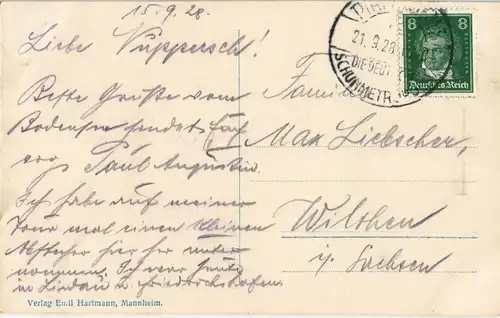 15.9.28.
Liebe Vuppersch!
Beste Grüße vom
Bodensee sendet Euch
Paul Augustin.
Ich habe auf meiner
Tour mal einen kleinen
Abstecher hier her unter
nommen. Ich war heute
in Lindau u. Friedrichshafen
Verlag Emil Hartmann, Mannheim.
21.9.28
8 8
Deutsches Reich
Familie
Max Liebscher,
Wilthen
i/ Sachsen